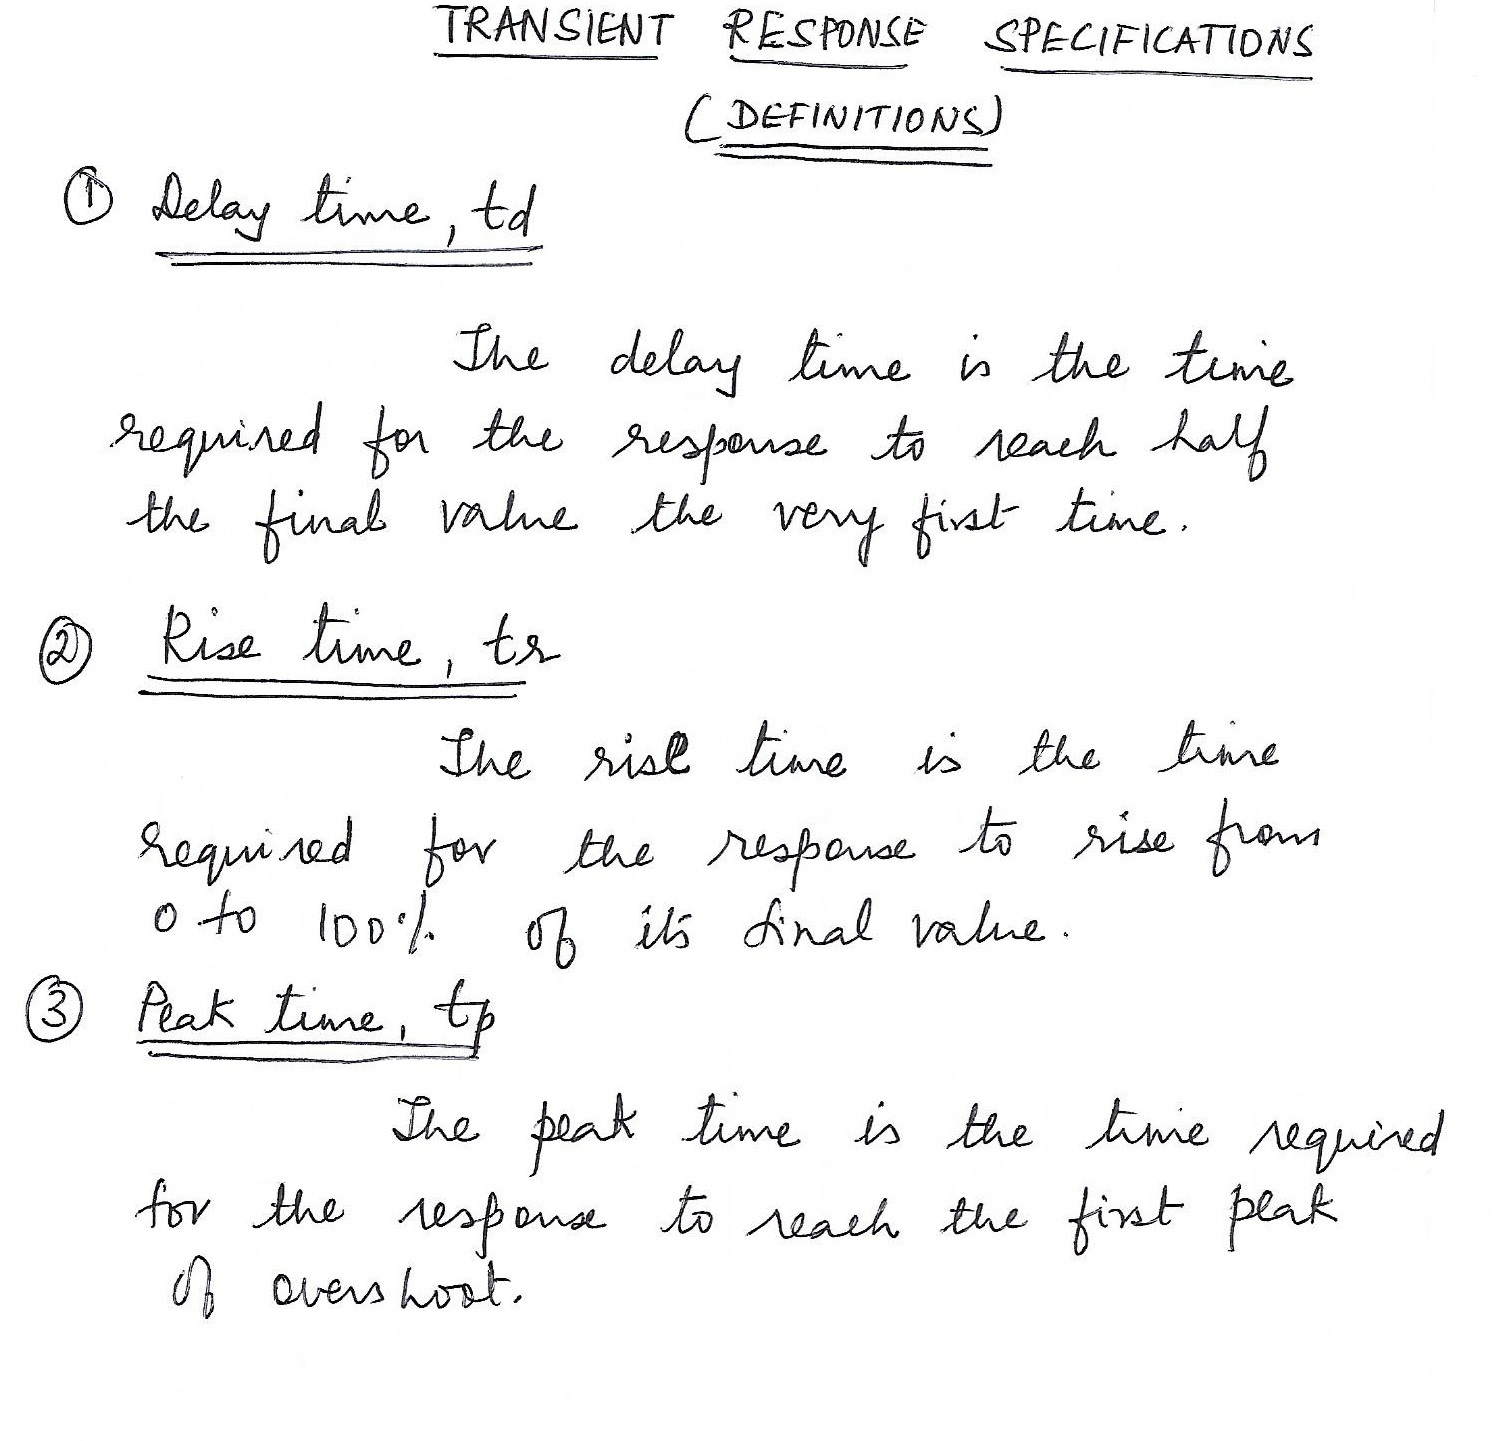 TRANSIENT RESPONSE SPECIFICATIONS
(DEFINITIONS)
① Delay time, td
The delay time is the time
required for the response to reach half
the final value the very first time.
② Rise time, tr
The rise time is the time
required for the response to rise from
0 to 100% of its final value.
③ Peak time, tp
The peak time is the time required
for the response to reach the first peak
of overshoot.